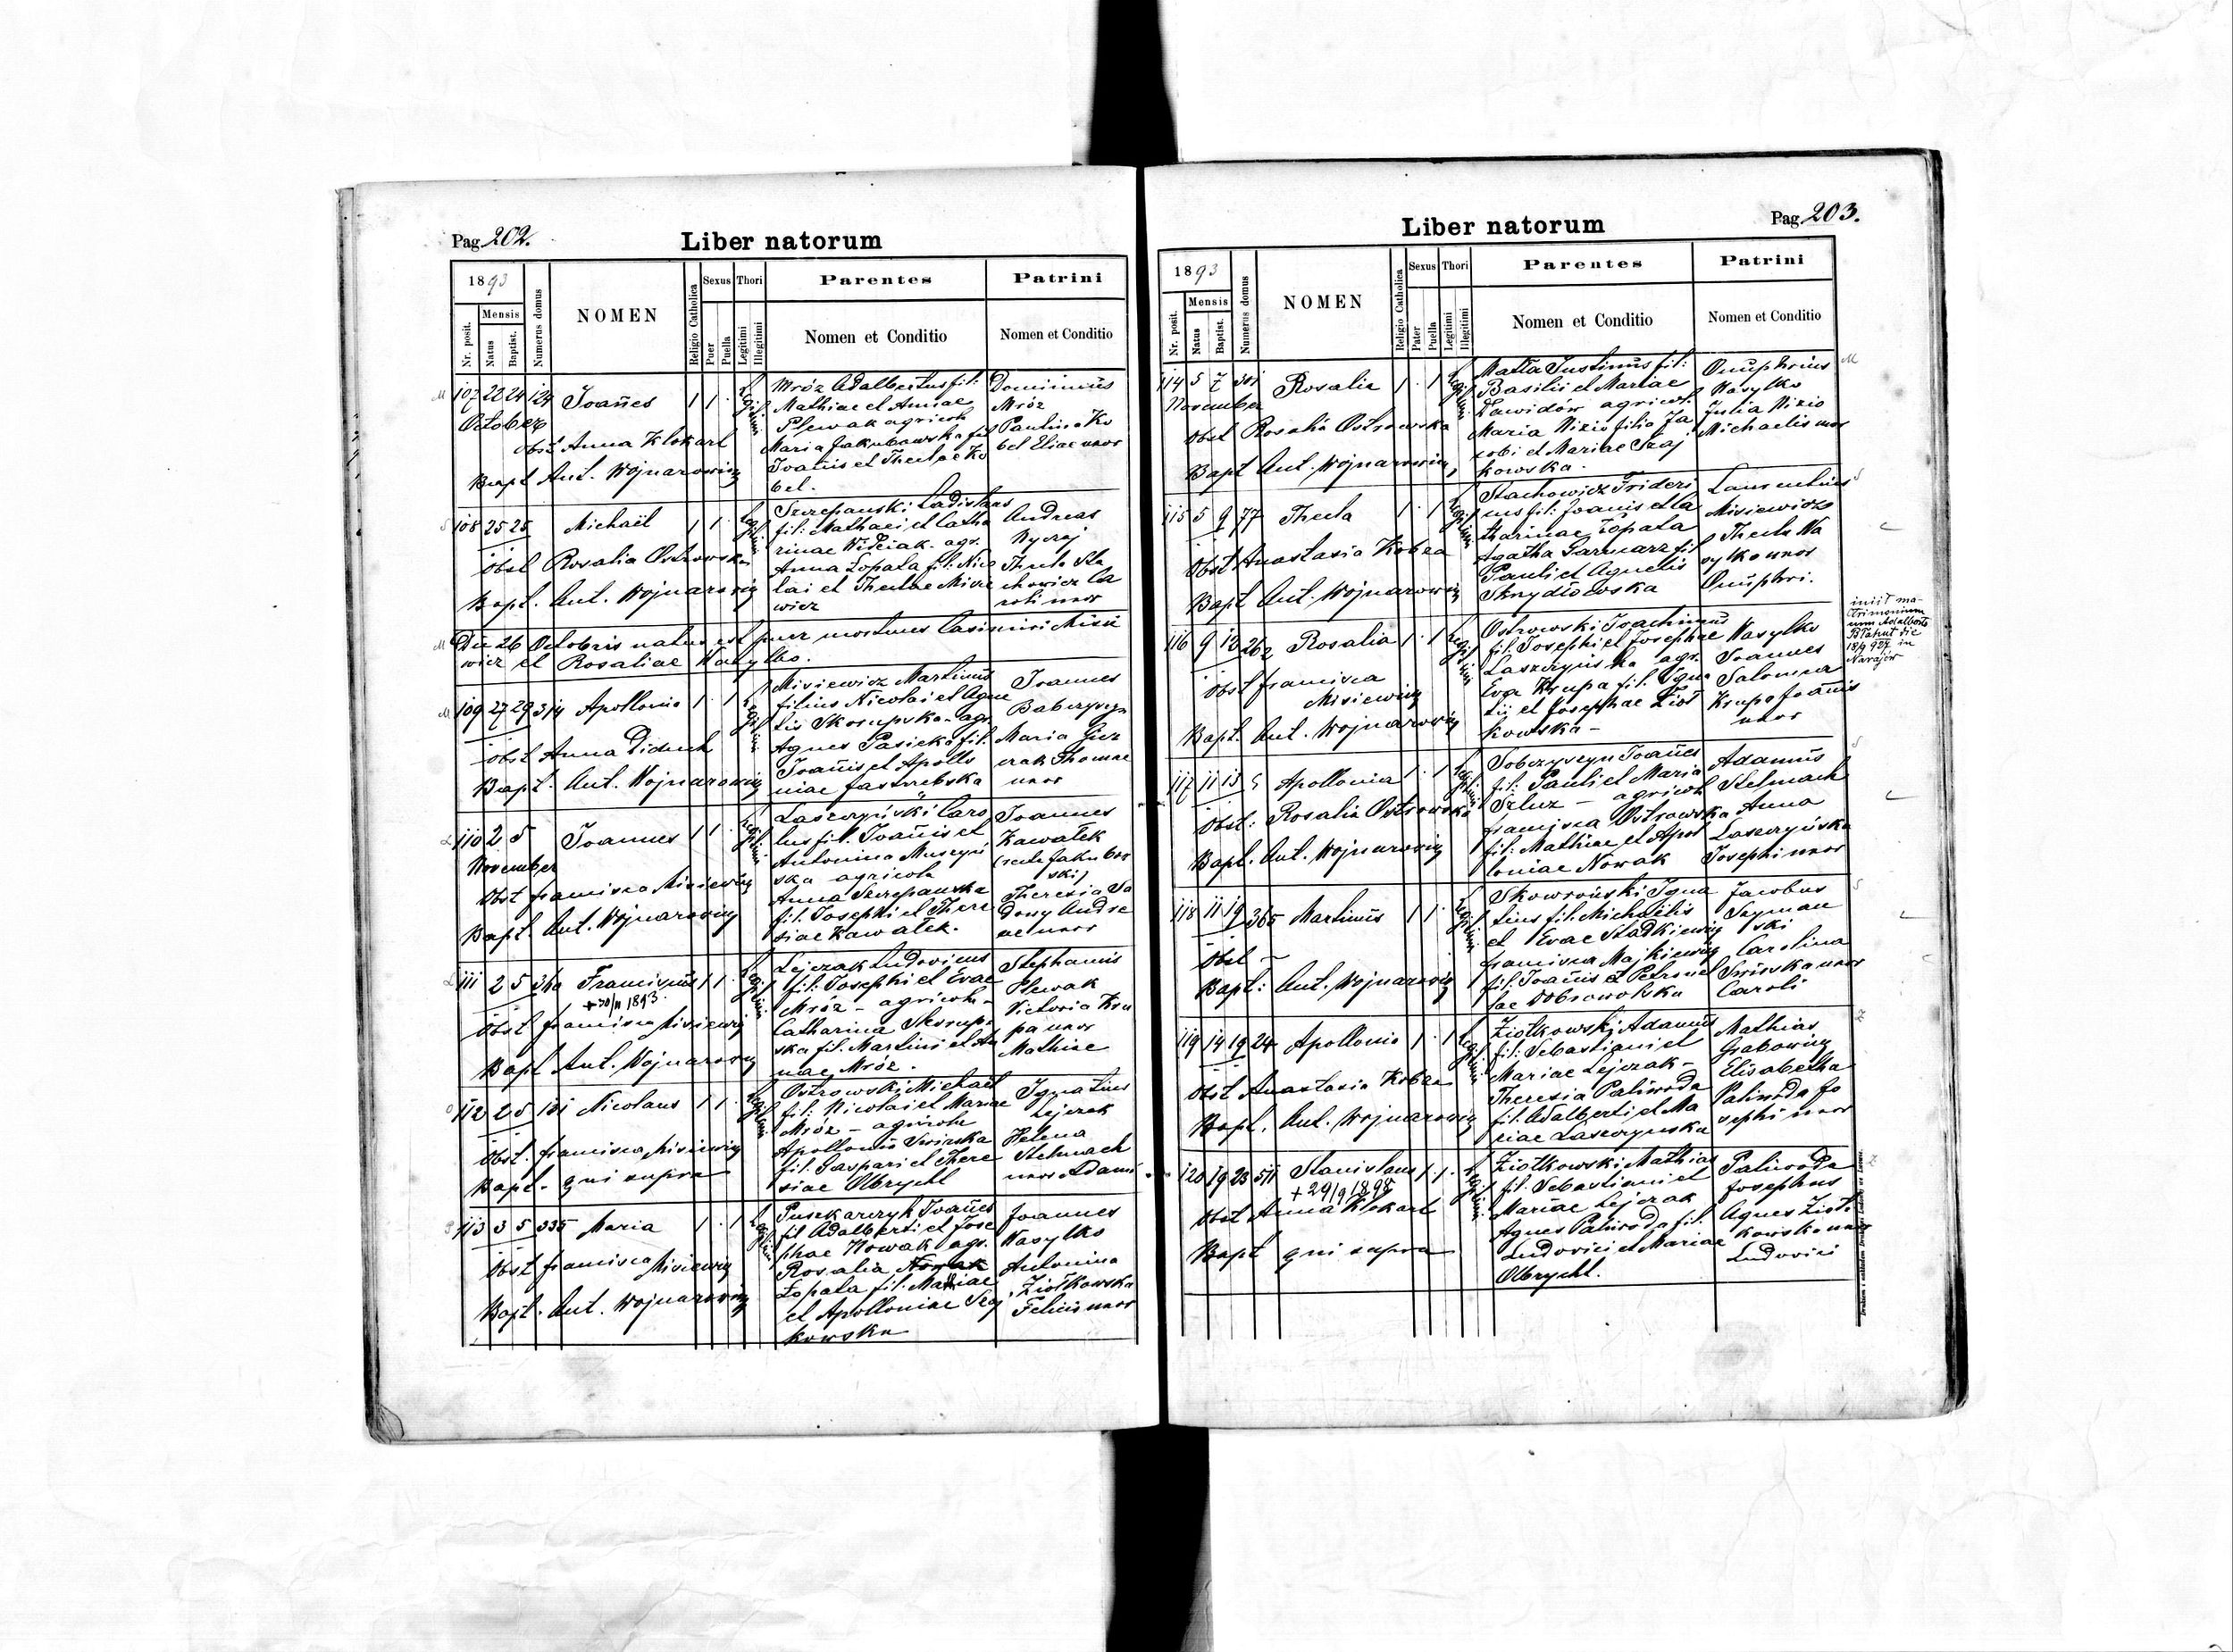 Pag. 202.
Liber natorum
1893
Nr. posit.
Mensis
Natus
Baptist.
Numerus domus
NOMEN
Religio Catholica
Sexus
Puer
Puella
Thori
Legitimi
Illegitimi
Parentes
Nomen et Conditio
Patrini
Nomen et Conditio
107 22 24 124 Joañes 1 1
October
Obst Anna Klokart
Bapt Ant. Wojnarowicz
Mróz Adalbertus fil:
Mathiae et Annae
Plewak agricola
Maria Jakubowska fil
Joanis et Theclae Ko
bel.
Dominicus
Mróz
Paulina Ko
bel Eliae uxor
108 25 25 Michaël 1 1
Obst Rosalia Ostrowska
Bapt. Ant. Wojnarowicz
Szczepanski Ladislaus
fil: Mathaei et Catha
rinae Wiciak. agr.
Anna Łopata fil: Nico
lai et Theclae Misie
wicz
Andreas
Thecla Sta
chowicz Ca
roli uxor
Die 26 Octobris natus est puer mortuus Casimiri Misie
wicz et Rosaliae Wasylko.
109 27 29 314 Apollonia 1 1
Obst Anna Diduch
Bapt. Ant. Wojnarowicz
Misiewicz Martinus
filius Nicolai et Agne
tis Skorupska - agr.
Agnes Pasieka fil:
Joañis et Apollo
niae Jastrzebska
Joannes
Babczyszyn
Maria
Thomae
uxor
110 2 5 Joannes 1 1
November
Obst Francisca Misiewicz
Bapt. Ant. Wojnarowicz
Laszczyński Caro
lus fil. Joañis et
Antonina Muszyń
ska agricola
Anna Szczepanska
fil. Josephi et There
siae Kawałek.
Joannes
Kawałek
(recte Jakubow
ski)
Theresia Sa
dowy Andre
ae uxor
111 2 5 340 Franciscus 1 1
+ 30/11 1893.
Obst Francisca Misiewicz
Bapt Ant. Wojnarowicz
Lejczak Ludovicus
fil: Josephi et Evae
Mróz - agricola -
Catharina Skorup
ska fil. Martini et An
nae Mróz.
Stephanus
Plewak
Victoria Kru
pa uxor
Mathiae
112 2 5 131 Nicolaus 1 1
Obst. Francisca Misiewicz
Bapt. qui supra
Ostrowski Michaël
fil: Nicolai et Mariae
Mróz - agricola
Apollonia Swirska
fil. Gaspari et There
siae Olbrycht
Ignatius
Lejczak
Helena
Stelmach
uxor Adami
113 3 5 335 Maria 1 1
Obst Francisca Misiewicz
Bapt. Ant. Wojnarowicz
Puszkarczyk Joañes
fil Adalberti et Jose
phae Nowak agr.
Rosalia Nowak
Łopata fil. Mathiae
et Apolloniae Szaj
kowska
Joannes
Wasylko
Antonina
Ziółkowska
Felicis uxor
Pag. 203.
Liber natorum
1893
Nr. posit.
Mensis
Natus
Baptist.
Numerus domus
NOMEN
Religio Catholica
Sexus
Pater
Puella
Thori
Legitimi
Illegitimi
Parentes
Nomen et Conditio
Patrini
Nomen et Conditio
114 5 7 301 Rosalia 1 1
November
Obst Rosalia Ostrowska
Bapt Ant. Wojnarowicz
Matla Justinus fil:
Basilii et Mariae
Dawidów agricol.
Maria Nizio filia Ja
cobi et Mariae Szaj
kowska.
Onuphrius
Wasylko
Julia Nizio
Michaelis uxor
115 5 9 77 Thecla 1 1
Obst Anastasia Kobza
Bapt Ant. Wojnarowicz
Stachowicz Frideri
cus fil: Joanis et Ca
tharinae Łopata
Agatha Garncarz fil
Pauli et Agnetis
Skrydłowska
Laurentius
Misiewicz
Thecla Wa
sylko uxor
Onuphri.
116 9 13 262 Rosalia 1 1
Obst Francisca
Misiewicz
Bapt. Ant. Wojnarowicz
Ostrowski Joachimus
fil. Josephi et Josephae
Laszczyńska agr.
Eva Krupa fil. Igna
tii et Josephae Ziół
kowska -
Wasylko
Joannes
Salomea
Krupa Joanis
uxor
iniit ma-
trimonium
cum Adalberto
die
18/9 927 in
Narajów
117 11 13 5 Apollonia 1 1
Obst: Rosalia Ostrowska
Bapt. Ant. Wojnarowicz
Sobczyszyn Joañes
fil: Pauli et Maria
Szluz - agricol
Francisca Ostrowska
fil: Mathiae et Apol
loniae Nowak
Adamus
Stelmach
Anna
Laszczyńska
Josephi uxor
118 11 19 365 Martinus 1 1
Obst -
Bapt: Ant. Wojnarowicz
Skowroński Igna
tius fil. Michaëlis
et Evae Stadkiewicz
Francisca Majkiewicz
fil: Joañis et Petronel
lae Dobrowolska
Jacobus
Szyman
ski
Carolina
Swirska uxor
Caroli
119 14 19 24 Apollonia 1 1
Obst Anastasia Kobza
Bapt. Ant. Wojnarowicz
Ziółkowski Adamus
fil: Sebastiani et
Mariae Lejczak -
Theresia Paliwoda
fil. Adalberti et Ma
riae Laszczynska
Mathias
Grabowicz
Elisabetha
Paliwoda Jo
sephi uxor
120 19 23 511 Stanislaus 1 1
+ 29/9 1898
Obst Anna Klokart
Bapt qui supra
Ziółkowski Mathias
fil. Sebastiani et
Mariae Lejczak
Agnes Paliwoda fil.
Ludovici et Mariae
Olbrycht.
Paliwoda
Josephus
Agnes Ziół
kowska uxor
Ludovici